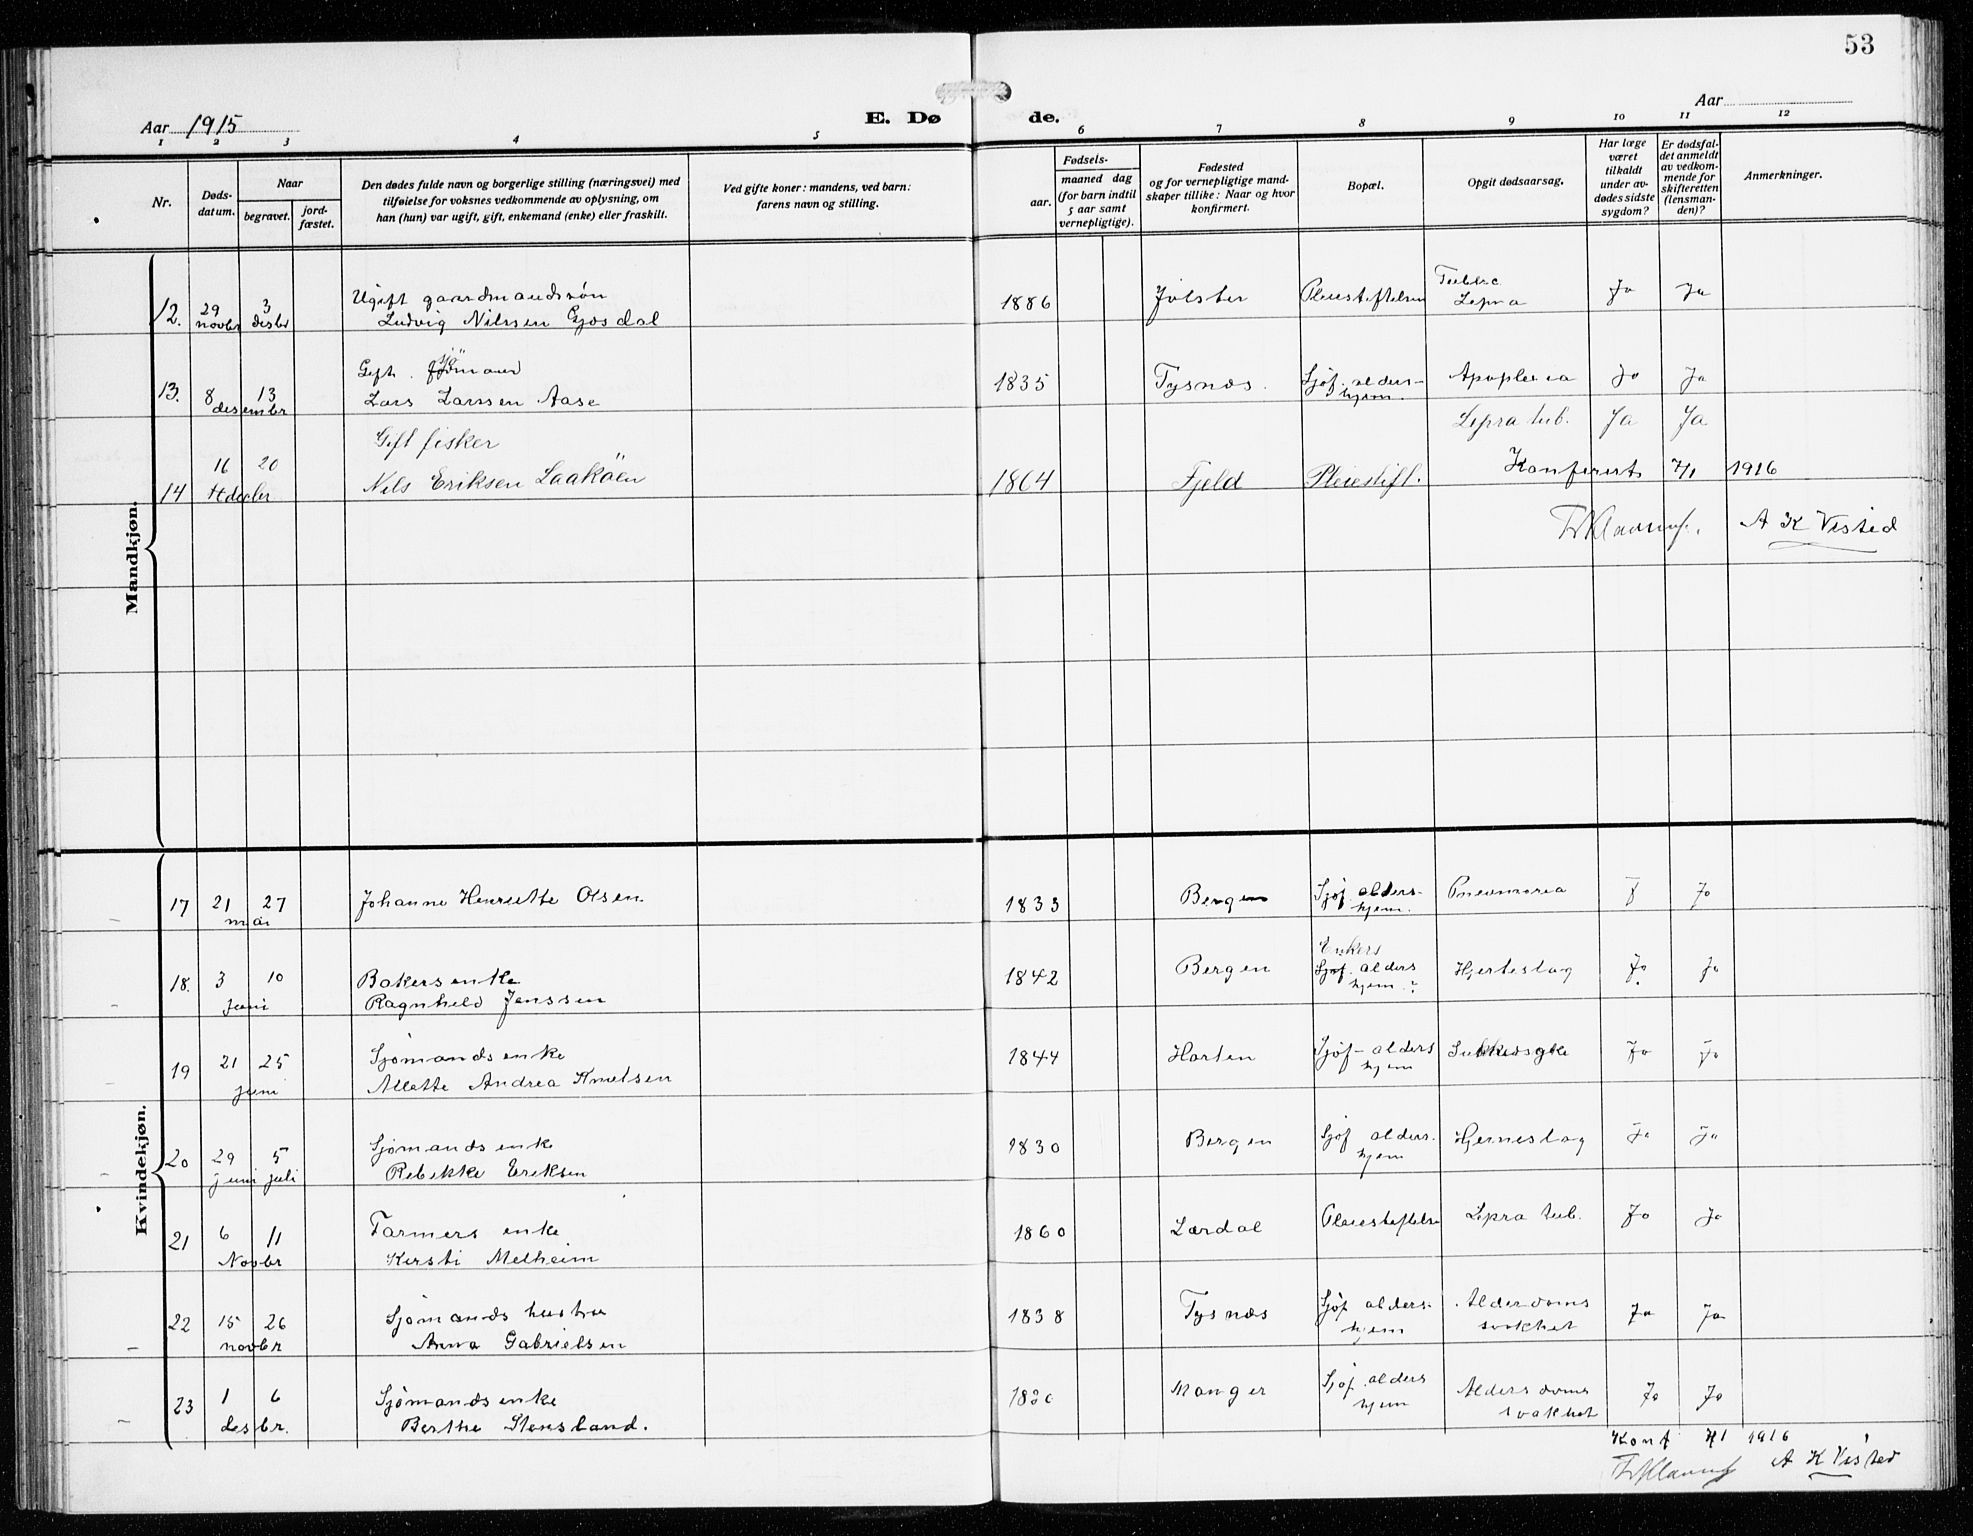 53
Aar 1915
E. Dø de.
Aar
1 2 3 4 5 6 7 8 9 10 11 12
Nr.
Døds-
datum.
Naar
begravet.
jord-
fæstet.
Den dødes fulde navn og borgerlige stilling (næringsvei) med
tilføielse for voksnes vedkommende av oplysning, om
han (hun) var ugift, gift, enkemand (enke) eller fraskilt.
Ved gifte koner: mandens, ved barn:
farens navn og stilling.
Fødsels-
aar.
maaned dag
(for barn indtil
5 aar samt
vernepligtige).
Fødested
og for vernepligtige mand-
skaper tillike: Naar og hvor
konfirmert.
Bopæl.
Opgit dødsaarsag.
Har læge
været
tilkaldt
under av-
dødes sidste
sygdom?
Er dødsfal-
det anmeldt
av vedkom-
mende for
skifteretten
(lensman-
den)?
Anmerkninger.
Mandkjøn.
12. 29 novbr 3 desbr Ugift gaardmandssøn
Ludvig Nilssen Gjesdal 1886 Jølster Pleiestiftelsen Tuberc. Lepra Ja Ja
13. 8 13 desembr Gift sjømand
Lars Larssen Aase 1835 Tysnæs. Sjøf. alders-
hjem. Apoplexia Ja Ja
14 16 20 desbr Gift fisker
Nils Eriksen Laaköen 1864 Fjeld Pleiestift. Lepra tub. Ja Ja
Konferert 4/1 1916
A K Visted
Kvindekjøn.
17 21 27 mai Johanne Henriette Olsen 1833 Bergen Sjøf. alders-
hjem. Pneumonia J Ja
18. 3 10 Juni Bakersenke
Ragnhild Jenssen 1842 Bergen Enkers
Sjøf. alders
hjem.? Hjerteslag Ja Ja
19 21 25 juni Sjømands enke
Allette Andrea Knutsen 1844 Horten Sjøf-alders
hjem Sukkersyke Ja Ja
20 29 juni 5 juli Sjømands enke
Rebekke Eriksen 1830 Bergen Sjøf alders.
hjem Hjerneslag Ja Ja
21 6 11 Novbr Farmers enke
Kersti Melheim 1860 Lærdal Pleiestiftelse Lepra tub. Ja Ja
22 15 26 novbr Sjømands hustru
Anna Gabrielsen 1838 Tysnæs Sjøf alders.
hjem Alderdoms
svakhet Ja Ja
23 1 6 desbr. Sjømands enke
Berthe Stensland. Manger Sjøf. alders
hjem Alderdoms
svakhet Ja Ja
Konf 4/1 1916
A K Visted